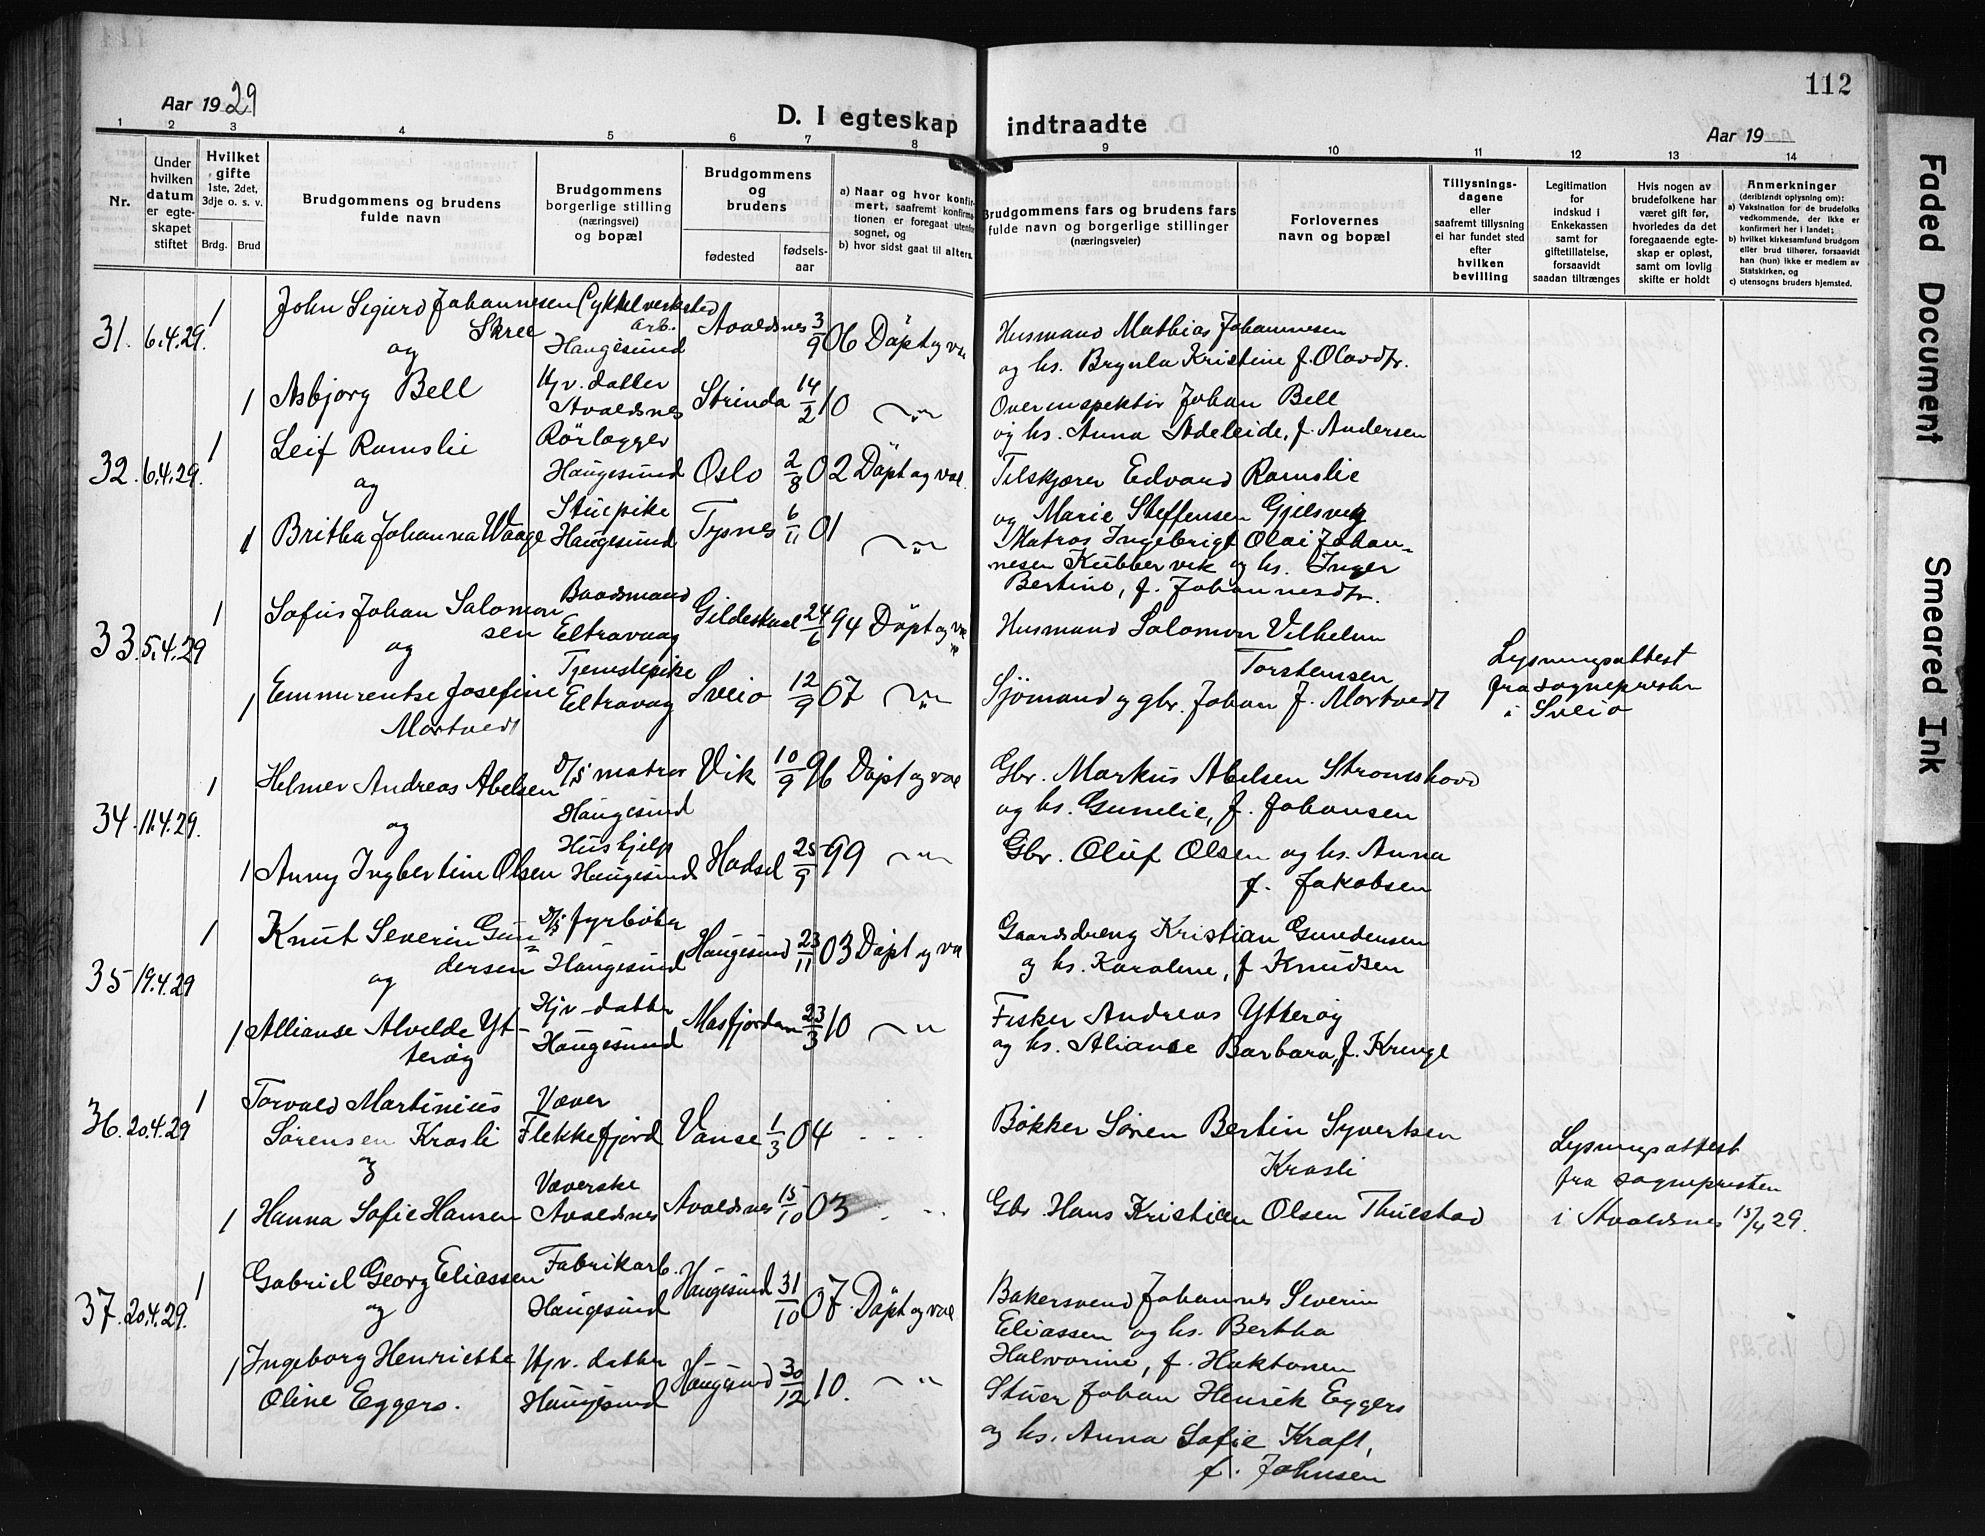 112
Aar 1929
D. I egteskap indtraadte
Aar 19
1 2 3 4 5 6 7 8 9 10 11 12 13 14
Nr.
Under hvilken datum er egteskapet stiftet
Hvilket gifte
1ste, 2det, 3dje o. s. v.
Brdg. Brud
Brudgommens og brudens fulde navn
Brudgommens borgerlige stilling (næringsvei) og bopæl
Brudgommens og brudens
fødested
fødselsaar
a) Naar og hvor konfirmert, saafremt konfirmationen er foregaat utenfor sognet, og
b) hvor sidst gaat til alters.
Brudgommens fars og brudens fars fulde navn og borgerlige stillinger (næringsveier)
Forlovernes navn og bopæl
Tillysningsdagene eller saafremt tillysning ei har fundet sted efter hvilken bevilling
Legitimation for indskud i Enkekassen samt for giftetillatelse, forsaavidt saadan tiltrænges
Hvis nogen av brudefolkene har været gift før, hvorledes da det foregaaende egteskap er opløst, samt om lovlig skifte er holdt
Anmerkninger
(deriblandt oplysning om):
a) Vaksination for de brudefolks vedkommende, der ikke er konfirmert her i landet;
b) hvilket kirkesamfund brudgom eller brud tilhører, forsaavidt han (hun) ikke er medlem av Statskirken, og
c) utensogns bruders hjemsted.
31. 6.4.29. 1 John Sigurd Johannesen Skree
og
Cykkelverksted arb. Haugesund
Avaldsnes 3/9 06 Døpt og vac
Husmand Mathias Johannesen
og hs. Brynla Kristine f. Olavdtr.
1 Asbjorg Bell
Hjv. datter Avaldsnes
Strinda 14/2 10 — " —
Overinspektör Johan Bell
og hs. Anna Adeleide, f. Andersen
32. 6.4.29. 1 Leif Ramslie
og
Rörlægger Haugesund
Oslo 2/8 02 Døpt og vac.
Tilskjærer Edvard Ramslie
og Marie Steffensen Gjelsvig
1 Britha Johanna Waage
Stuepike Haugesund
Tysnes 6/11 01 — " —
Matros Ingebrigt Olai Johannesen Kubbervik og hs. Inger
Bertine, f. Johannesdtr.
33. 5.4.29 1 Sofus Johan Salomonsen
og
Baadsmand Eltravaag
Gildeskaal 24/6 94 Døpt og vac
Husmand Solomon Vilhelm
Torstensen
1 Emmerentse Josefine
Mortvedt
Tjenestepike Eltravag
Sveio 12/9 07 — " —
Sjömand og gbr. Johan J. Mortvedt
Lysningsattest
fra sogneprester
i Sveio
34. 11.4.29. 1 Helmer Andreas Abelsen
og
D/S matros Haugesund
Vik 10/9 96 Døpt og vac
Gbr. Markus Abelsen Stromshovd
og hs. Gunelie, f. Johansen
1 Anny Ingbertine Olsen
Hushjelp Haugesund
Hadsel 25/9 99 — " —
Gbr. Oluf Olsen og hs. Anna
f. Jakobsen
35 19.4.29 1 Knut Severin Gundersen
og
D/S fyrbøter Haugesund
Haugesund 23/11 03 Døpt og vac
Gaardsdreng Kristian Gundersen
og hs. Karoline, f Knudsen
1 Allianse Alvilde Ytterøg
Hjv-datter Haugesund
Masfjorden 23/3 10 — " —
Fisker Andreas Ytterøg
og hs. Alianse Barbara, f. Kringe
36. 20.4.29 1 Torvald Martinius
Sørensen Krosli
og
Væver Flekkefjord
Vanse 1/3 04 - - -
Bøkker Sören Bertin Syvertsen
Krosli
Lysningsattest
fra sognepresten
i Avaldsnes 15/4 29.
1 Hanna Sofie Hansen
Væverske Avaldsnes
Avaldsnes 15/10 03 - - -
Gbr. Hans Kristian Olsen Thuestad
37. 20.4.29. 1 Gabriel Georg Eliassen
og
Fabrikarb. Haugesund
Haugesund 31/10 07. Døpt og vac
Bakersvend Johannes Severin
Eliassen og hs. Bertha
Halvorine, f. Haktonen
1 Ingeborg Henriette
Oline Eggers.
Hjv. datter Haugesund
Haugesund 30/12 10. — " —
Stuer Johan Henrik Eggers
og hs. Anna Sofie Kraft,
f. Johnsen
Faded Document
Smeared Ink